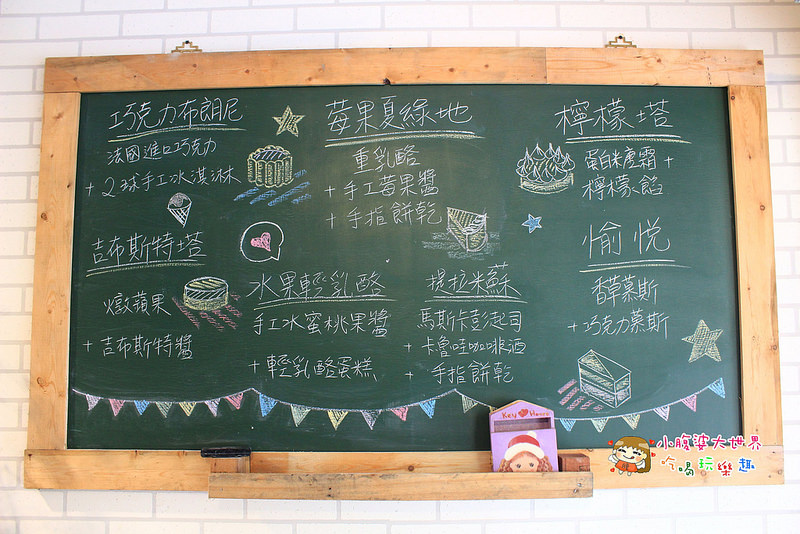 巧克力布朗尼
法國進口巧克力
+2球手工冰淇淋
莓果夏綠地
重乳酪
+手工莓果醬
+手指餅乾
檸檬塔
蛋白米糖霜+
檸檬餡
吉布斯特塔
燉蘋果
+吉布斯特醬
水果輕乳酪
手工水蜜桃果醬
+輕乳酪蛋糕
提拉米蘇
馬斯卡彭起司
+卡魯哇咖啡酒
+手指餅乾
愉悅
香草慕斯
+巧克力慕斯
Key Home
小腹婆大世界
吃喝玩樂趣